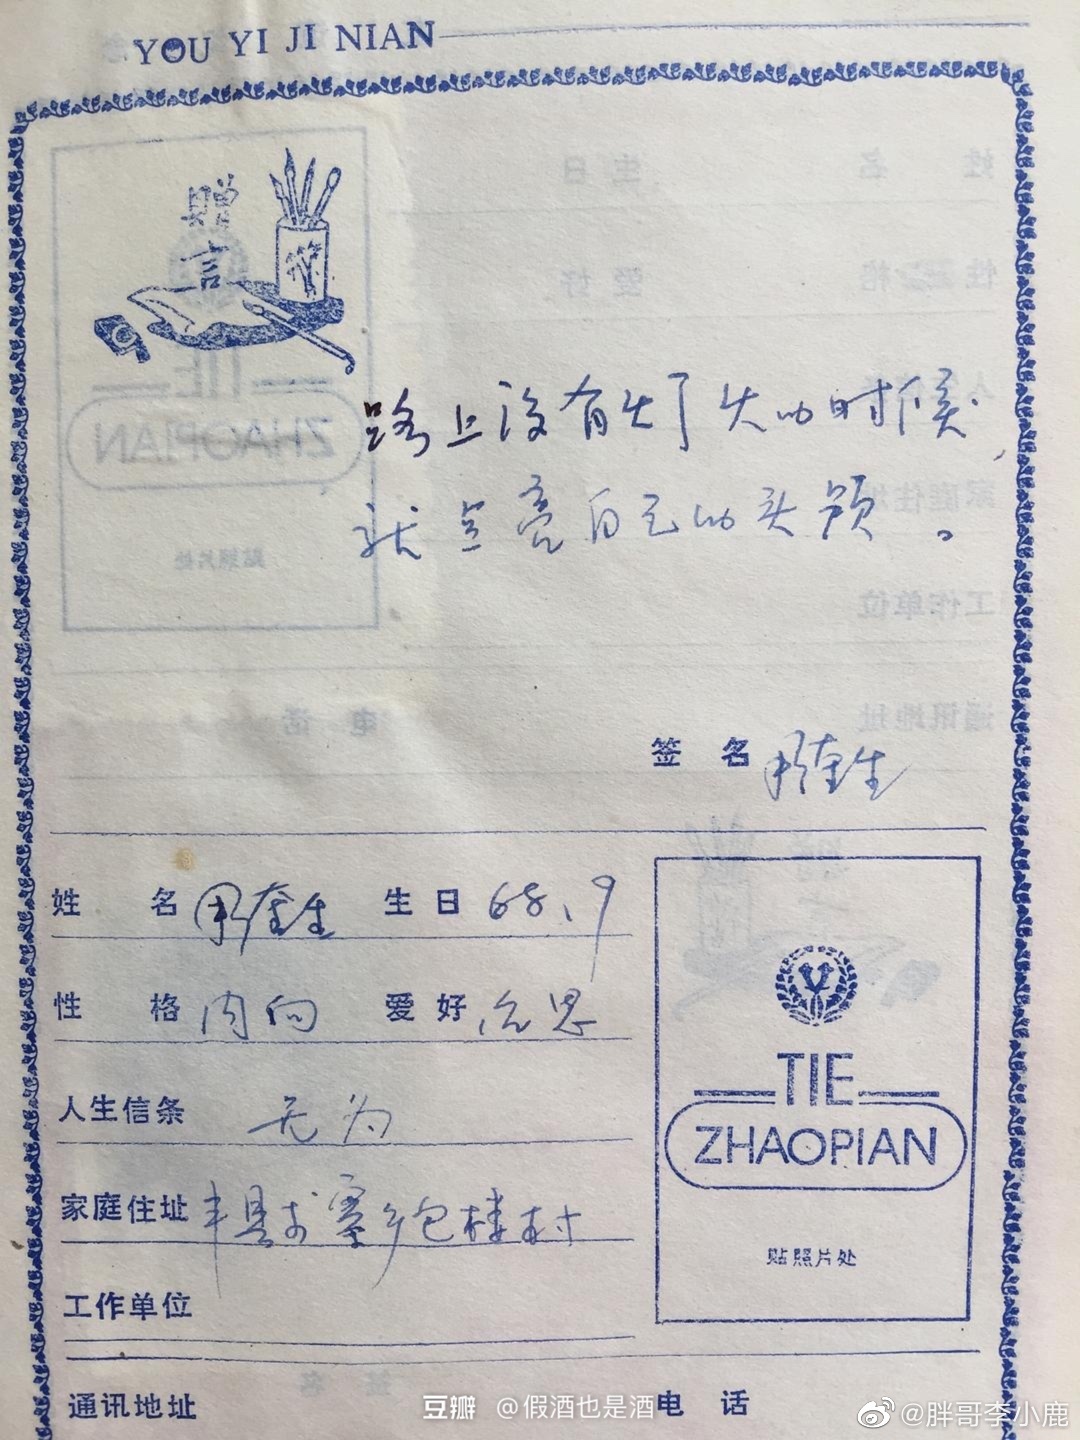 YOU YI JI NIAN
赠言
路上没有灯火的时候,
就点亮自己的头颅。
签 名
姓 名 生 日 68.9
性 格 内向 爱 好 沉思
人生信条 无为
家庭住址 丰县 寨乡包楼村
工作单位
通讯地址 电 话
TIE
ZHAOPIAN
贴照片处
豆瓣 @假酒也是酒
@胖哥李小鹿